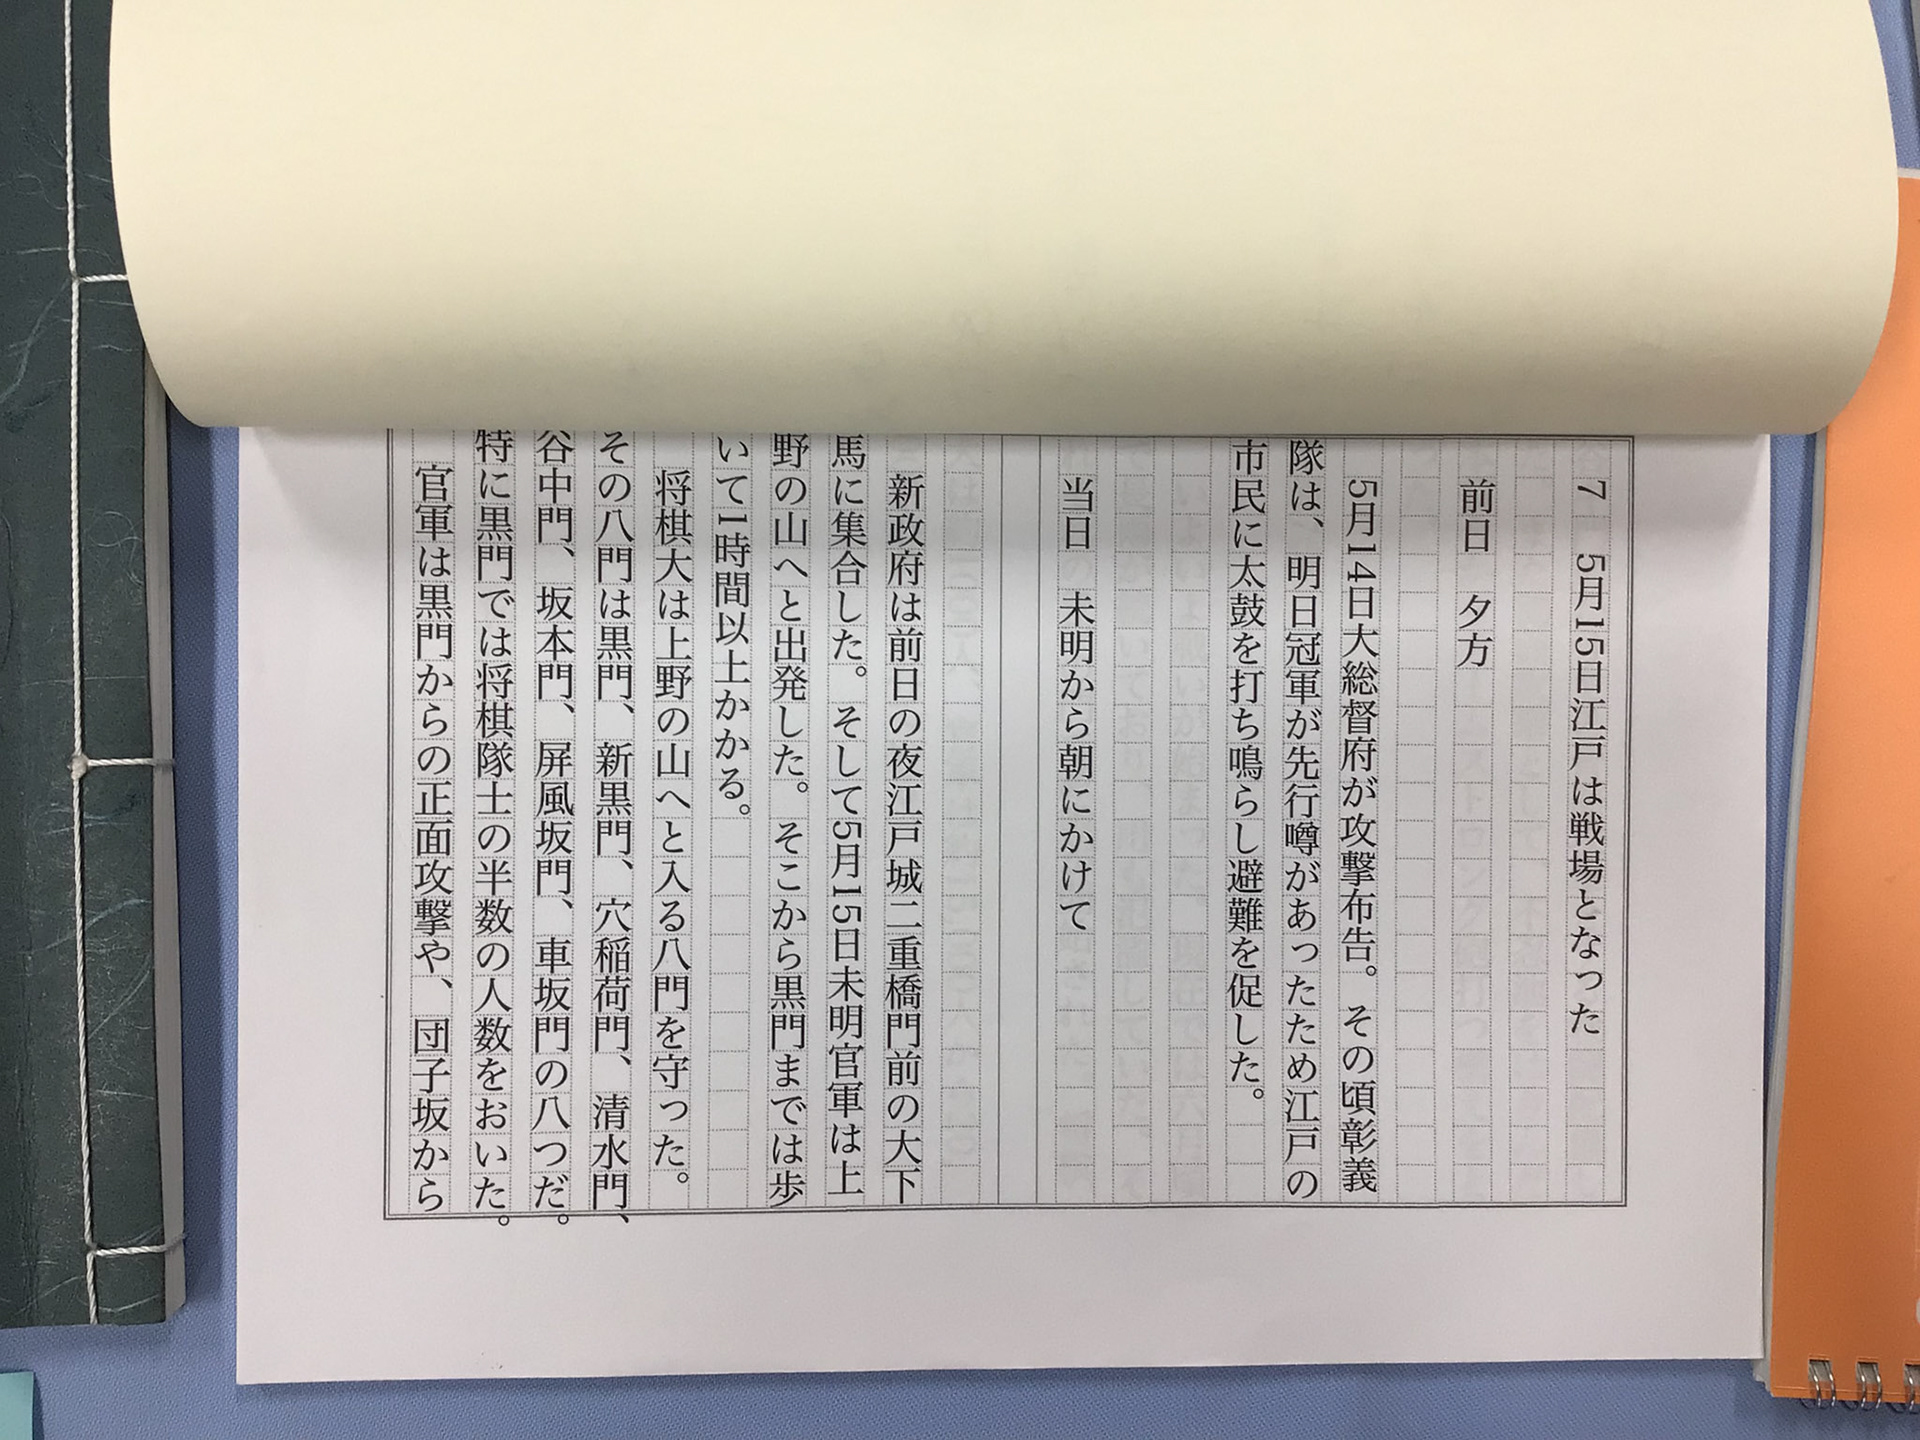 7　5月15日江戸は戦場となった
前日　夕方
5月14日大総督府が攻撃布告。その頃彰義
隊は、明日冠軍が先行噂があったため江戸の
市民に太鼓を打ち鳴らし避難を促した。
当日　未明から朝にかけて
新政府は前日の夜江戸城二重橋門前の大下
馬に集合した。そして5月15日未明官軍は上
野の山へと出発した。そこから黒門までは歩
いて1時間以上かかる。
将棋大は上野の山へと入る八門を守った。
その八門は黒門、新黒門、穴稲荷門、清水門、
谷中門、坂本門、屏風坂門、車坂門の八つだ。
特に黒門では将棋隊士の半数の人数をおいた。
官軍は黒門からの正面攻撃や、団子坂から